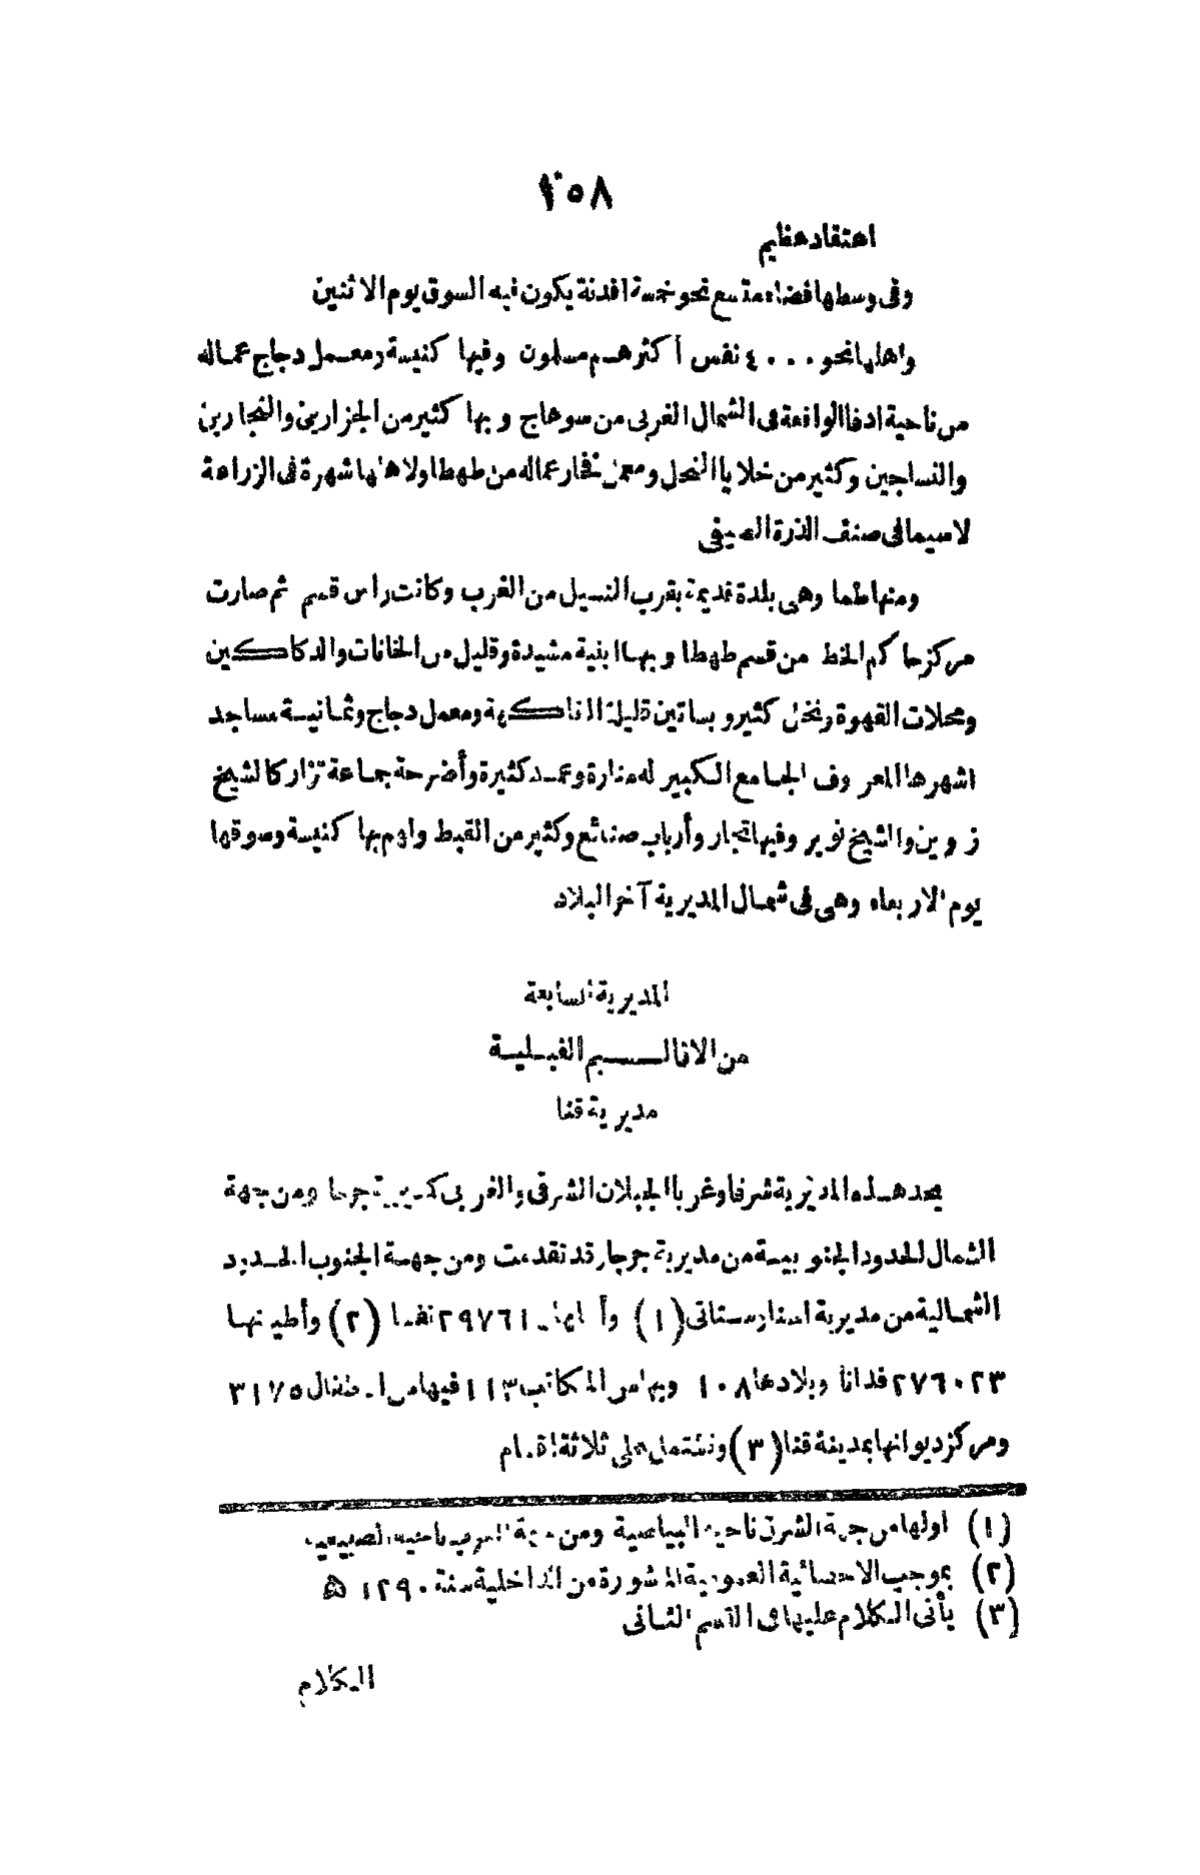 ٢٥٨
اعتقاد عظيم
وفى وسطها فضاء متسع نحو خمسة افدنة يكون فيه السوق يوم الاثنين
واهاليها نحو ٤٠٠٠ نفس أكثرهم مسلمون وفيها كنيسة ومعمل دجاج عماله
من ناحية ادفا الواقعة فى الشمال الغربى من سوهاج وبها كثير من الجزارين والنجارين
والنساجين وكثير من خلايا النحل ومعمل فخار عماله من طهطا ولاهلها شهرة فى الزراعة
لاسيما فى صنف الذرة الصيفى
ومنها طما وهى بلدة قديمة بقرب النسيل من الغرب وكانت راس قسم ثم صارت
مركز حاكم الخط من قسم طهطا وبها ابنية مشيدة وقليل من الخانات والدكاكين
ومحلات القهوة ونخل كثير وبساتين قليلة الفاكهة ومعمل دجاج وثمانية مساجد
اشهرها المعروف الجامع الكبير له منارة وعمد كثيرة وأضرحة جماعة تزار كالشيخ
زوين والشيخ نوير وفيها تجار وأرباب صنائع وكثير من القبط ولهم بها كنيسة وسوقها
يوم الاربعاء وهى فى شمال المديرية آخر البلاد
المديرية السابعة
من الاقاليم القبلية
مديرية قنا
يحد هذه المديرية شرقا وغربا الجبلان الشرقى والغربى كمديرية جرجا ومن جهة
الشمال الحدود الجنوبية من مديرية جرجا وقد تقدمت ومن جهة الجنوب الحدود
الشمالية من مديرية اسنا (١) ٢٩٧٦١ نفسا (٢) وأطيانها
٢٧٦٠٢٣ فدانا وبلادها ١٠٨ وبها من المكاتب ١١٣ فيها من الاطفال ٣١٧٥
ومركز ديوانها بمدينة قنا (٣) وتشتمل على ثلاثة اقسام
(١) اولها من جهة الشرق ناحية البياضية ومن جهة الغرب ناحية
(٢) بموجب الاحصائية العمومية المنشورة من الداخلية سنة ١٢٩٠ ه
(٣) يأتى الكلام عليها فى القسم الثانى
الكلام